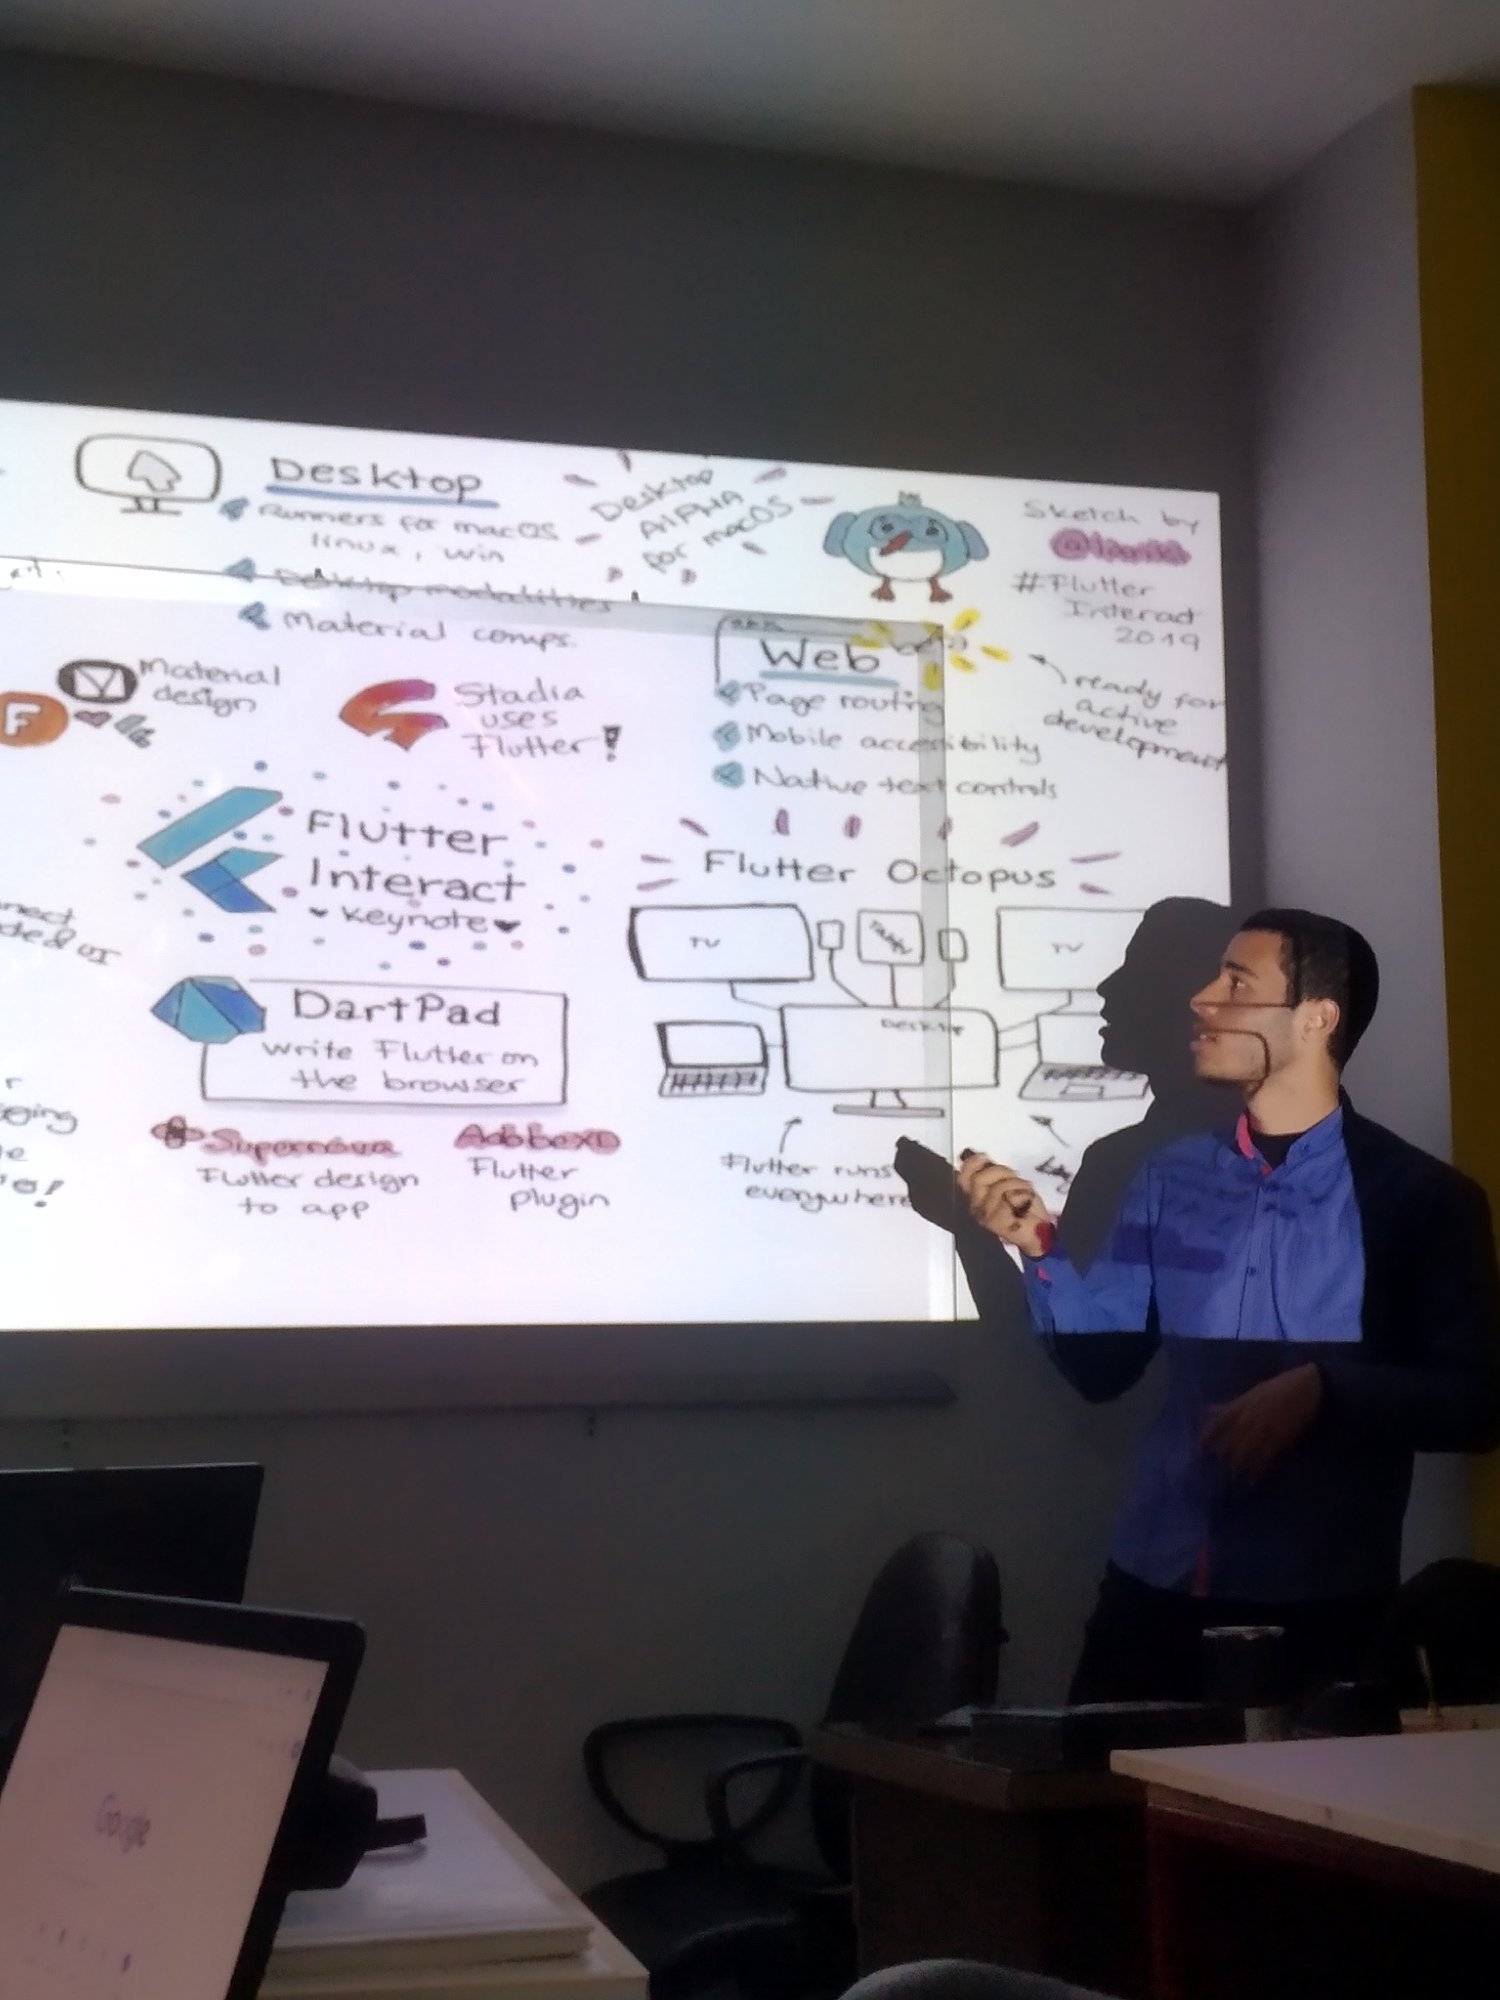 Desktop
Runners for macOS
linux, win
Desktop modalities
Material comps.
Desktop
AlPHA
for macOS
Sketch by
#Flutter
Interact
2019
Material
design
F
Stadia
uses
Flutter!
Web
beta
Page routing
Mobile accessibility
Native text controls
ready for
active
development
Flutter
Interact
keynote
Flutter Octopus
TV
TV
Desktop
DartPad
Write Flutter on
the browser
Supernova
Flutter design
to app
AdobeXD
Flutter
plugin
Flutter runs
everywhere
Google